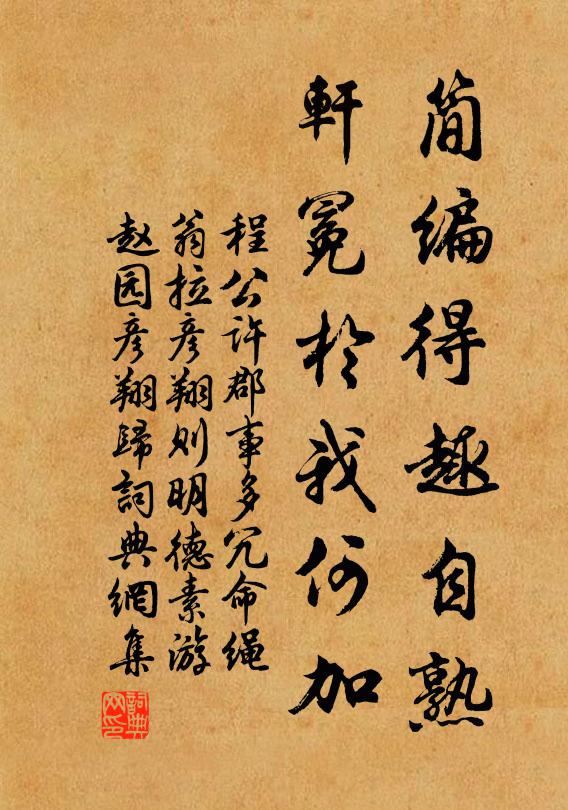 简编得趣自熟
軒冕於我何加
程公许郡事多冗命绳
翁拉彦翔则明德素游
赵园彦翔歸詞典網集
詞典网印